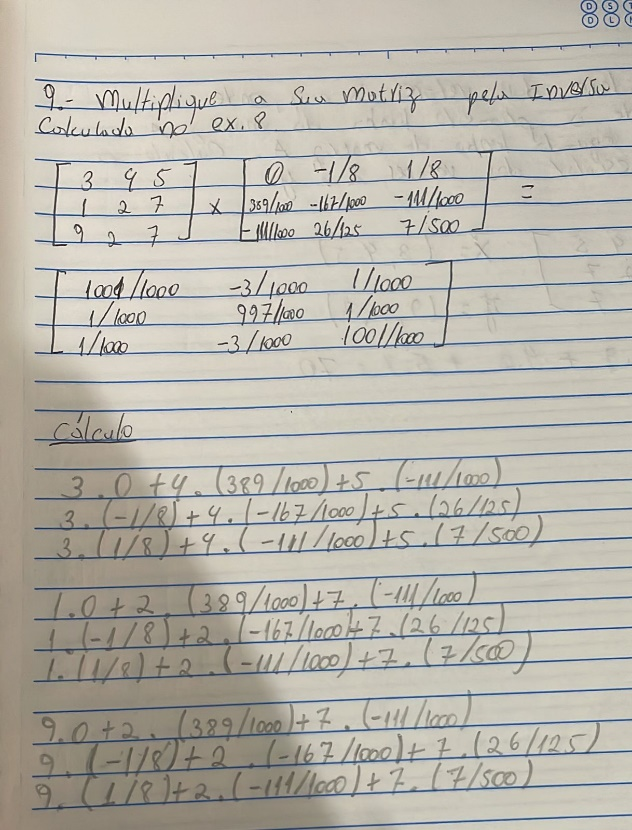 D S T
D L M
9.- Multiplique a sua matriz pela Inversa
Calculada no ex. 8
3 4 5 0 -1/8 1/8
1 2 7 x 389/1000 -167/1000 -111/1000 =
9 2 7 -111/1000 26/125 7/500
1001/1000 -3/1000 1/1000
1/1000 997/1000 1/1000
1/1000 -3/1000 1001/1000
Cálculo
3.0+4.(389/1000)+5.(-111/1000)
3.(-1/8)+4.(-167/1000)+5.(26/125)
3.(1/8)+4.(-111/1000)+5.(7/500)
1.0+2.(389/1000)+7.(-111/1000)
1.(-1/8)+2.(-167/1000)+7.(26/125)
1.(1/8)+2.(-111/1000)+7.(7/500)
9.0+2.(389/1000)+7.(-111/1000)
9.(-1/8)+2.(-167/1000)+7.(26/125)
9.(1/8)+2.(-111/1000)+7.(7/500)